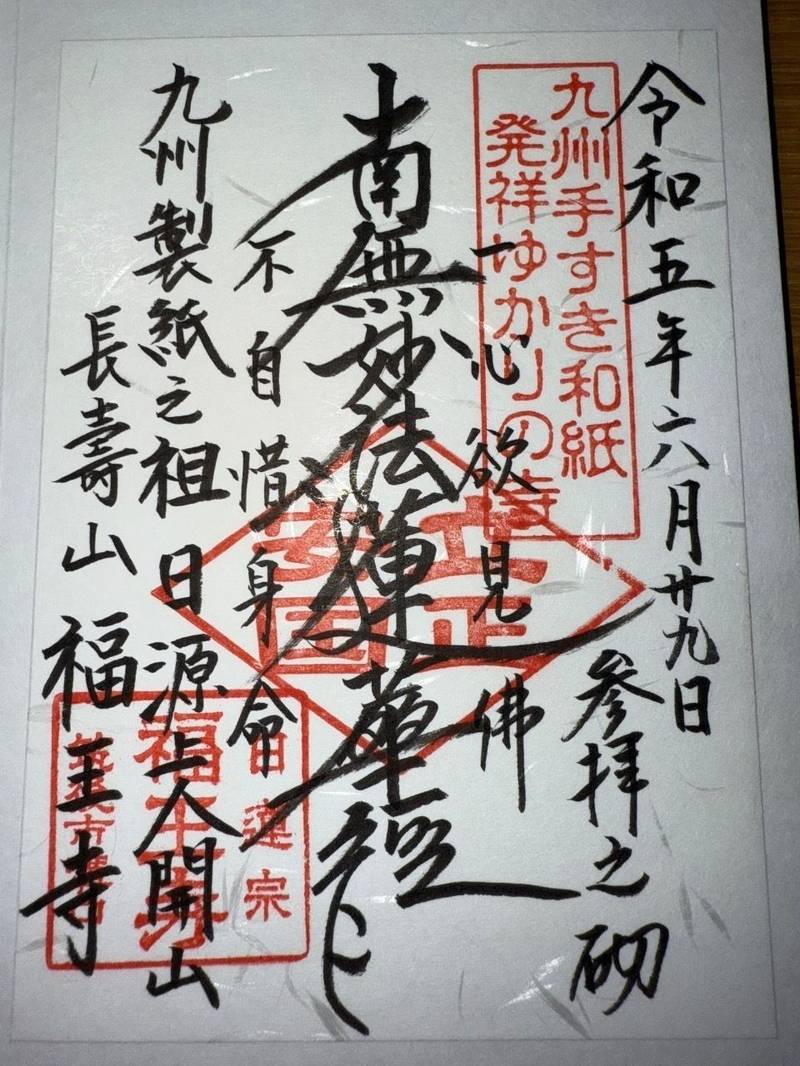 令和五年六月廿九日
参拝之砌
九州手すき和紙
発祥ゆかりの寺
一心欲見佛
南無妙法蓮華經
立正
安国
不自惜身命
九州製紙之祖 日源上人開山
長壽山 福王寺
日蓮宗
福王寺